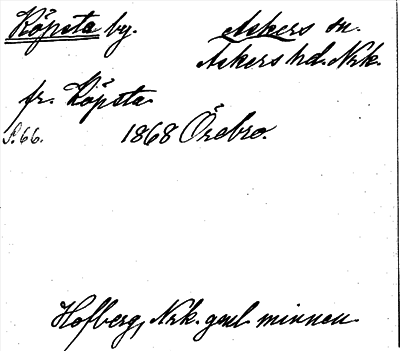 Köpsta by. Askers sn.
Askers hd. Nrk.
fr. Köpsta
S. 66. 1868 Örebro.
Hofberg, Nrk. gml minnen